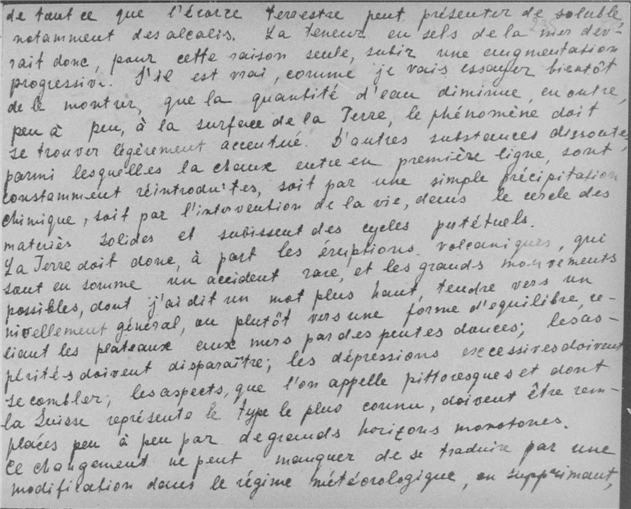 de tout ce que l'écorce terrestre peut présenter de soluble,
notamment des alcalis. La teneur en sels de la mer dev-
rait donc, pour cette raison seule, subir une augmentation
progressive. S'il est vrai, comme je vais essayer bientôt
de le montrer, que la quantité d'eau diminue, en outre,
peu à peu, à la surface de la Terre, le phénomène doit
se trouver légèrement accentué. D'autres substances dissoutes,
parmi lesquelles la chaux entre en première ligne, sont
constamment réintroduites, soit par une simple précipitation
chimique, soit par l'intervention de la vie, dans le cercle des
matériès solides et subissent des cycles perpétuels.
La Terre doit donc, à part les éruptions volcaniques, qui
sont en somme un accident rare, et les grands mouvements
possibles, dont j'ai dit un mot plus haut, tendre vers un
nivellement général, ou plutôt vers une forme d'équilibre, re-
liant les plateaux aux mers par des pentes douces; les as-
pérités doivent disparaître; les dépressions excessives doivent
se combler; les aspects, que l'on appelle pittoresques et dont
la Suisse représente le type le plus connu, doivent être rem-
placés peu à peu par de grands horizons monotones.
Ce changement ne peut manquer de se traduire par une
modification dans le régime météorologique, en supprimant,